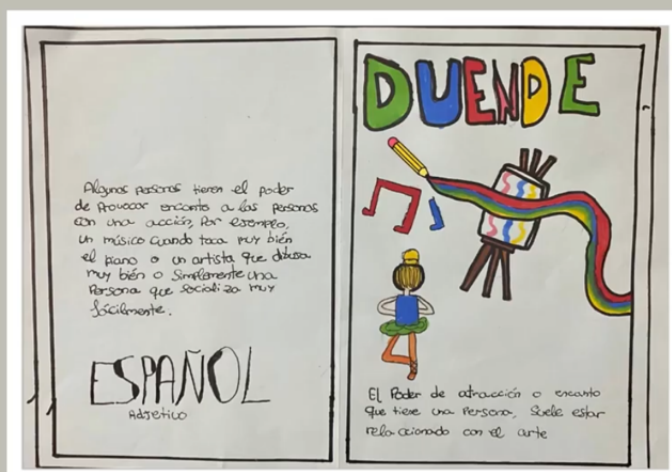 Algunas personas tienen el poder
de provocar encanto a las personas
con una acción, Por ejemplo,
un músico cuando toca muy bién
el piano o un artista que dibuja
muy bién o simplemente una
Persona que socializa muy
fácilmente.
ESPAÑOL
Adjetivo
DUENDE
El Poder de atracción o encanto
que tiene una Persona, Suele estar
relaccionado con el arte